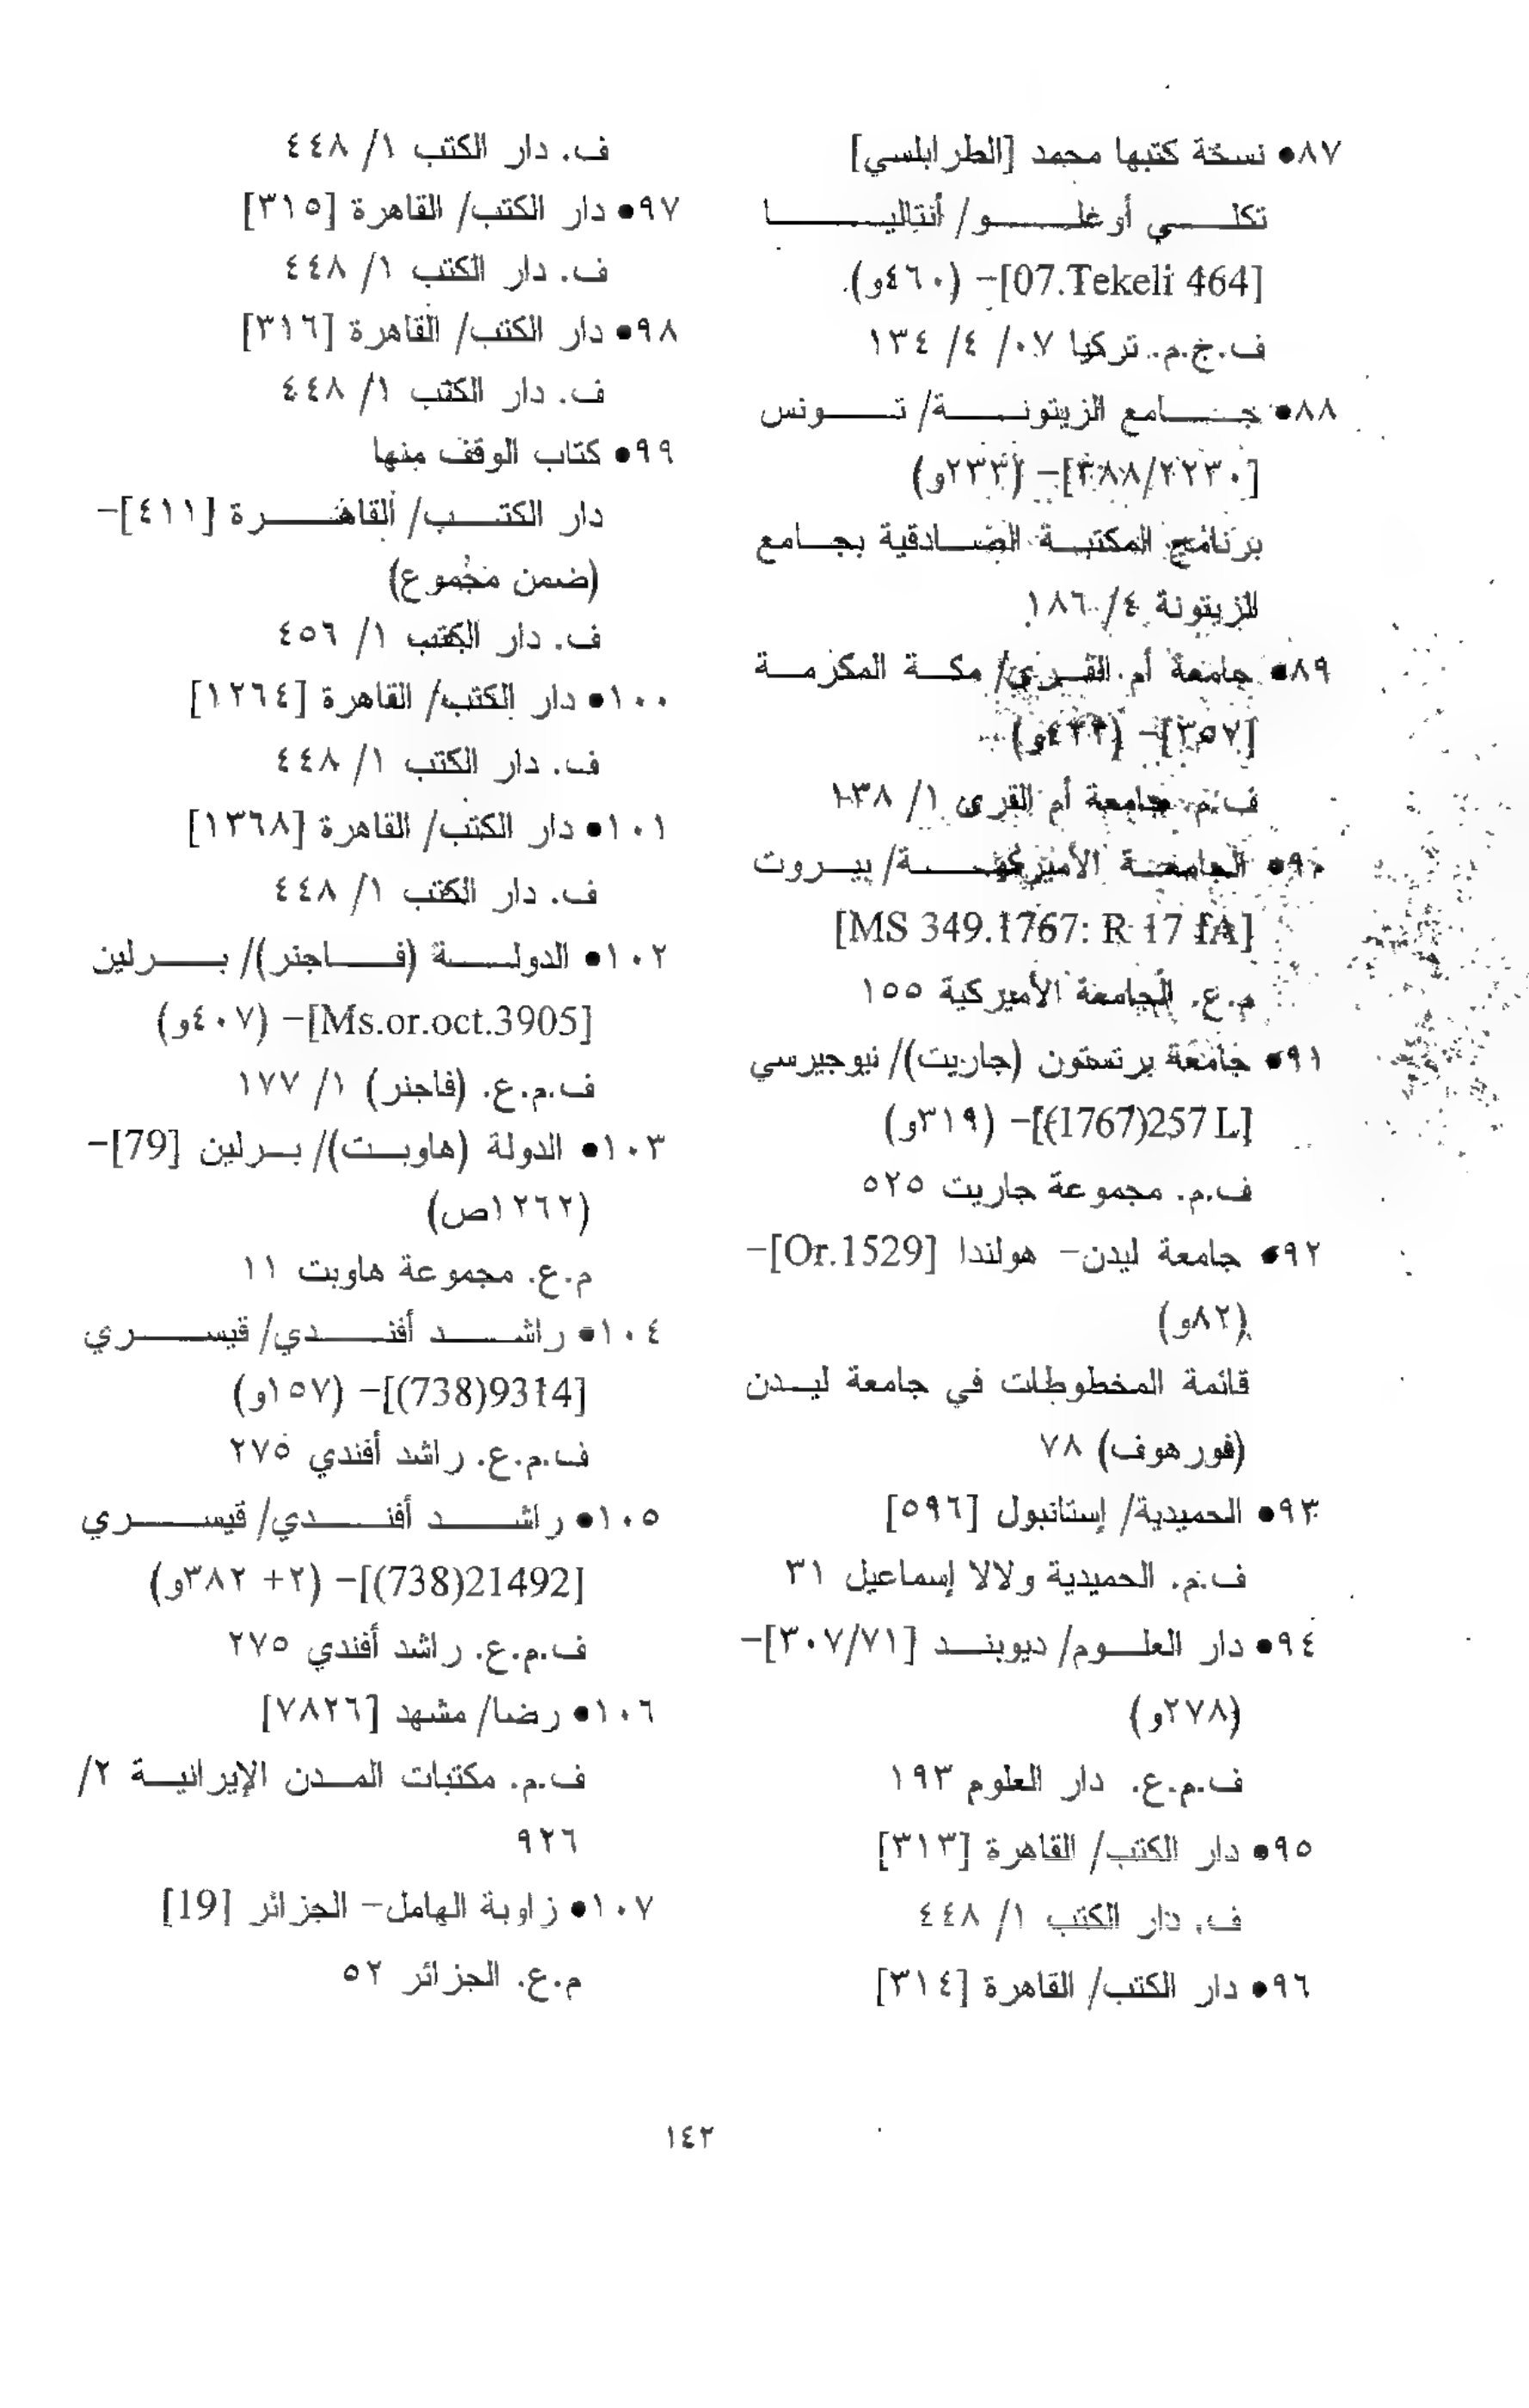 ٨٧● نسخة كتبها محمد [الطرابلسي]
تكلي أوغلو/ أنتاليا
[07.Tekeli 464]– (٤٦٠و)
ف.خ.م. تركيا ٠٧/ ٤/ ١٣٤
٨٨● جامع الزيتونة/ تونس
[٣٨٨/٢٢٣٠]– (٢٣٣و)
برنامج المكتبة الصادقية بجامع
الزيتونة ٤/ ١٨٦
٨٩● جامعة أم القرى/ مكة المكرمة
[٣٥٧]– (و)
ف.م. جامعة أم القرى ١/ ١٣٨
٩٠● الجامعة الأميركية/ بيروت
[MS 349.1767: R 17 fA]
م.ع. الجامعة الأميركية ١٥٥
٩١● جامعة برنستون (جاريت)/ نيوجيرسي
[(1767)257 L]– (٣١٩و)
ف.م. مجموعة جاريت ٥٢٥
٩٢● جامعة ليدن– هولندا [Or.1529]–
(٨٢و)
قائمة المخطوطات في جامعة ليدن
(فورهوف) ٧٨
٩٣● الحميدية/ إستانبول [٥٩٦]
ف.م. الحميدية ولالا إسماعيل ٣١
٩٤● دار العلوم/ ديوبند [٣٠٧/٧١]–
(٢٧٨و)
ف.م.ع. دار العلوم ١٩٣
٩٥● دار الكتب/ القاهرة [٣١٣]
ف. دار الكتب ١/ ٤٤٨
٩٦● دار الكتب/ القاهرة [٣١٤]
ف. دار الكتب ١/ ٤٤٨
٩٧● دار الكتب/ القاهرة [٣١٥]
ف. دار الكتب ١/ ٤٤٨
٩٨● دار الكتب/ القاهرة [٣١٦]
ف. دار الكتب ١/ ٤٤٨
٩٩● كتاب الوقف منها
دار الكتب/ القاهرة [٤١١]–
(ضمن مجموع)
ف. دار الكتب ١/ ٤٥٦
١٠٠● دار الكتب/ القاهرة [١٢٦٤]
ف. دار الكتب ١/ ٤٤٨
١٠١● دار الكتب/ القاهرة [١٣٦٨]
ف. دار الكتب ١/ ٤٤٨
١٠٢● الدولة (فاجنر)/ برلين
[Ms.or.oct.3905]– (٤٠٧و)
ف.م.ع. (فاجنر) ١/ ١٧٧
١٠٣● الدولة (هاوبت)/ برلين [79]–
(١٢٦٢ص)
م.ع. مجموعة هاوبت ١١
١٠٤● راشد أفندي/ قيسري
[(738)9314]– (١٥٧و)
ف.م.ع. راشد أفندي ٢٧٥
١٠٥● راشد أفندي/ قيسري
[(738)21492]– (٢+ ٣٨٢و)
ف.م.ع. راشد أفندي ٢٧٥
١٠٦● رضا/ مشهد [٧٨٢٦]
ف.م. مكتبات المدن الإيرانية ٢/
٩٢٦
١٠٧● زاوية الهامل– الجزائر [19]
م.ع. الجزائر ٥٢
١٤٢